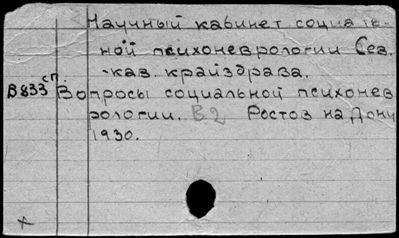 Научный кабинет социаль-
ной психоневрологии Сев.
-кав. крайздрава.
В833 сп. Вопросы социальной психонев
рологии. В2 Ростов на Дону
1930.